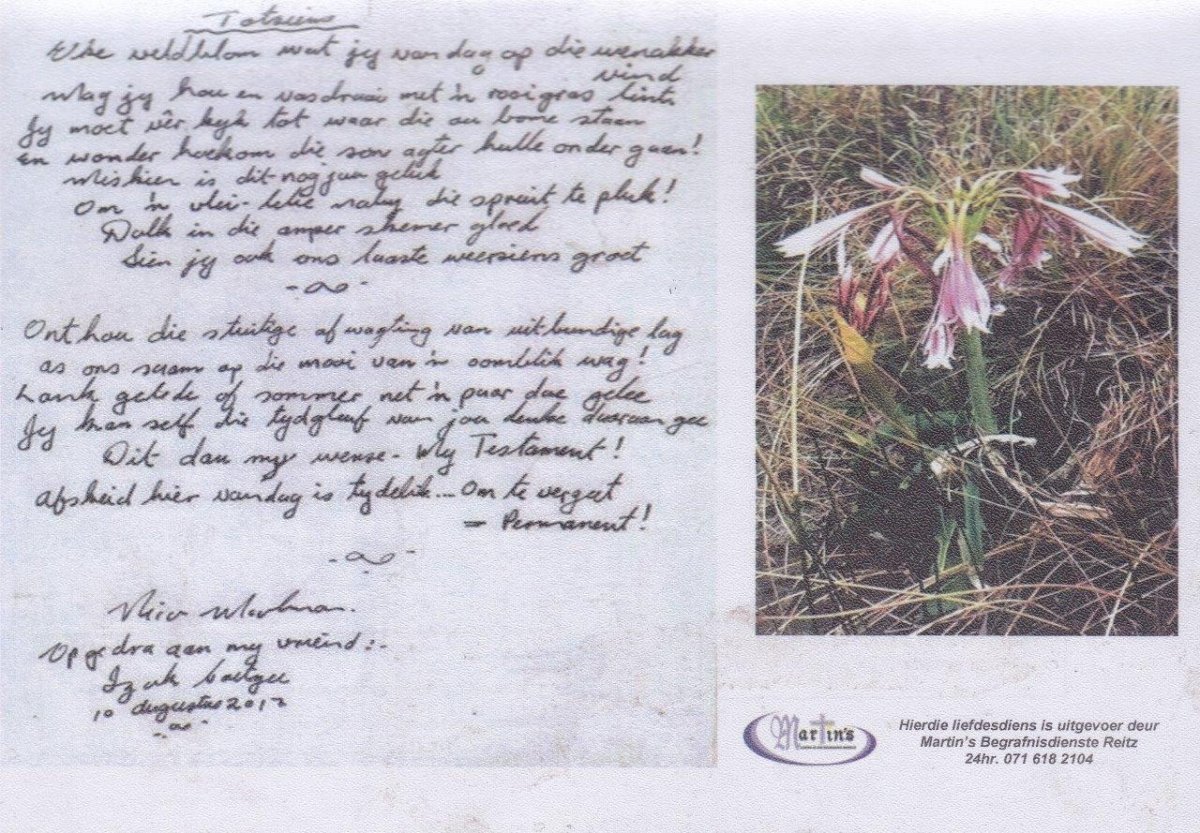 Totsiens
Elke veldblom wat jy vandag op die wenakker
vind
Mag jy hou en vasdraai met 'n rooigras lint.
Jy moet vêr kyk tot waar die ou bome staan
En wonder hoekom die son agter hulle onder gaan!
Miskien is dit nog jou geluk
Om 'n vlei-lelie naby die spruit te pluk!
Dalk in die amper skemer gloed
Sien jy ook ons laaste weersiens groet
Onthou die stuitige afwagting van uitbundige lag
as ons saam op die mooi van 'n oomblik wag!
Lank gelede of sommer net 'n paar dae gelee
Jy kan self die tydgleuf van jou denke daaraan gee
Dit dan my wense - My Testament!
Afsheid hier vandag is tydelik.... Om te vergeet
= Permanent!
Opgedra aan my vriend:-
Izak Coetzee
10 Augustus 2012
Martin's
Hierdie liefdesdiens is uitgevoer deur
Martin's Begrafnisdienste Reitz
24hr. 071 618 2104